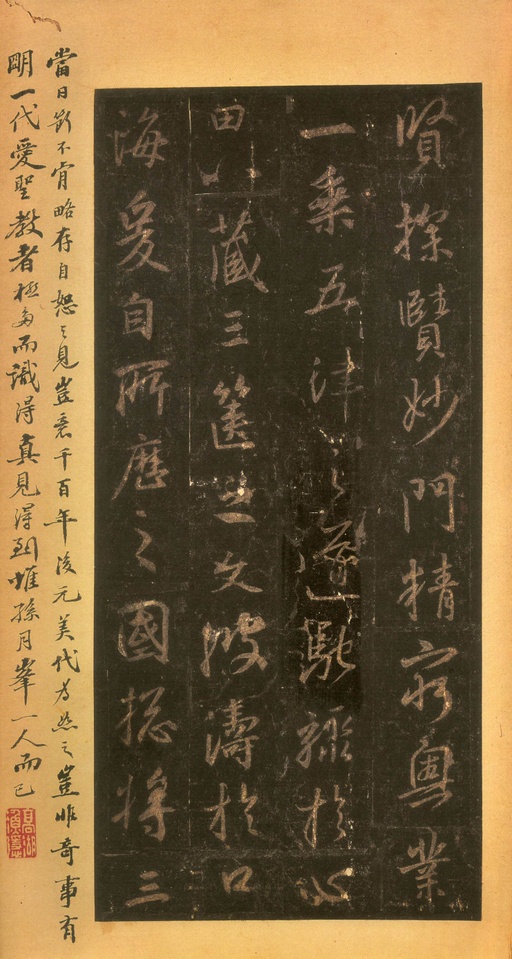 賢探賾妙門精窮奧業
一乘五律之道馳驟於心
田八藏三篋之文波濤於口
海爰自所歷之國總將三
當日斷不肯略存自恕之見豈意千百年後元美代為恕之豈非奇事有
明一代愛聖教者極多而識得真見得到惟孫月峯一人而已